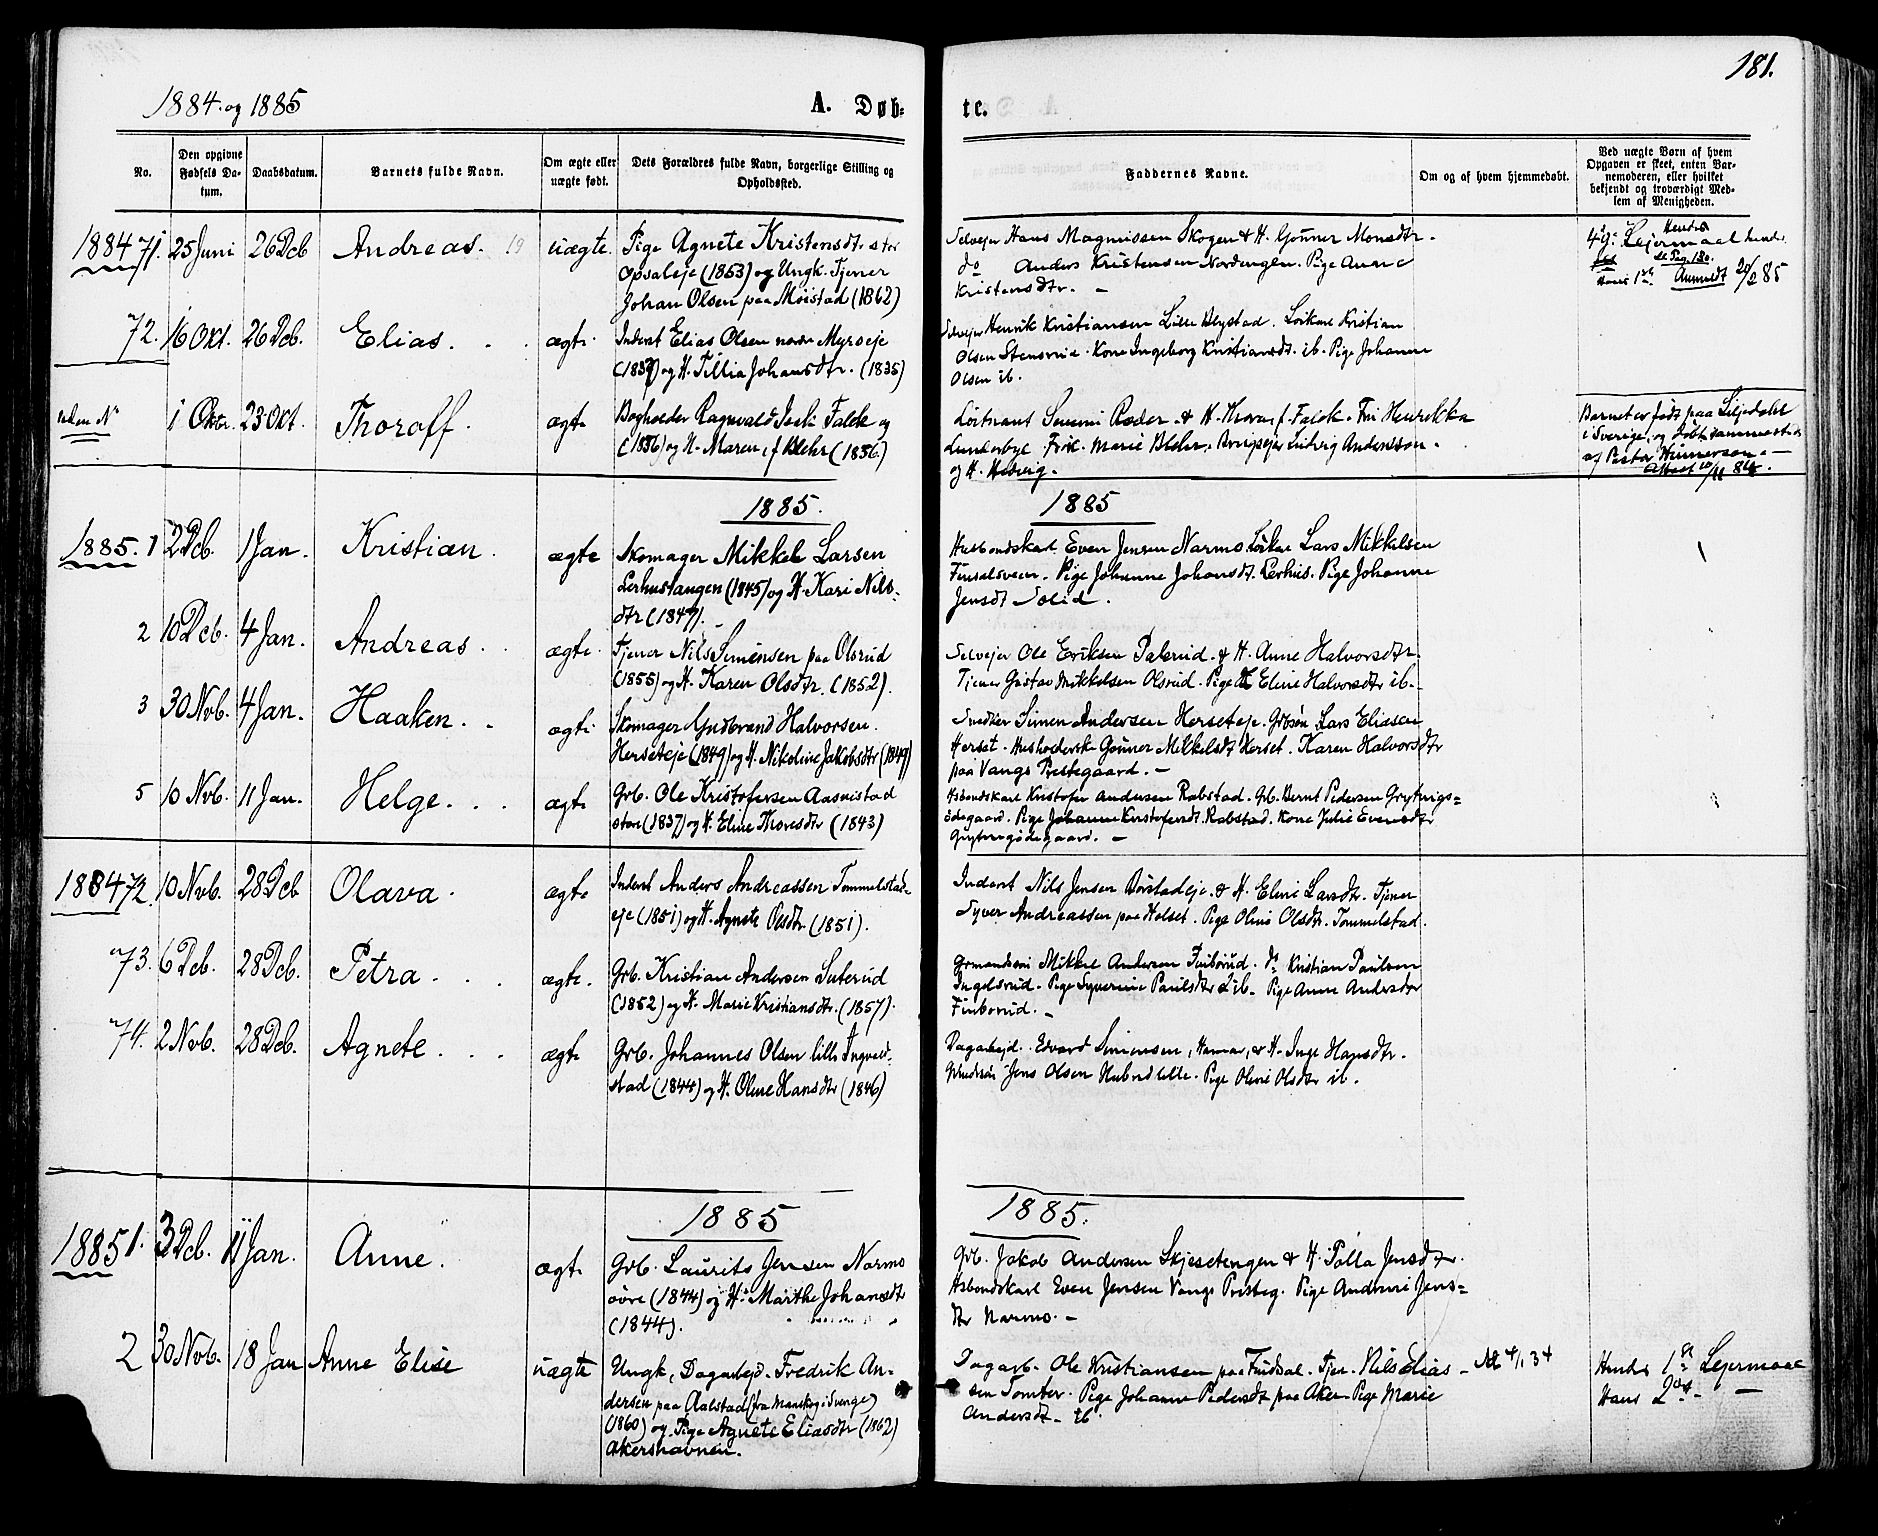 181.
1884. og 1885
A. Døb=
te.
No.
Den opgivne Fødsels Da-tum.
Daabsdatum.
Barnets fulde Navn.
Om ægte eller uægte født.
Dets Forældres fulde Navn, borgerlige Stilling og Opholdssted.
Faddernes Navne.
Om og af hvem hjemmedøbt.
Ved uægte Børn af hvem Opgaven er skeet, enten Bar-nemoderen, eller hvilket bekjendt og troværdigt Med-lem af Menigheden.
1884 71. 25 Juni 26 Dcb Andreas. uægte. Pige Agnete Kristensdtr stor
Opsaleje (1853) og Ungk. Tjener
Johan Olsen paa Moistad (1862)
Selvejer Hans Magnussen Skogen & H. Gønner Monsdtr.
do Anders Kristensen Nordengen. Pige Anne
Kristensdtr. -
Hendes
4de Lejermaal
Hans 1ste Anmeldt 20/2 85
72. 16 Okt. 26 Dcb. Elias. ægte. Inderst Elias Olsen nedre Myrseje
(1837) og H. Tillia Johansdtr. (1835)
Selvejer Henrik Kristiansen Lille Blystad. Løskarl Kristian
Olsen Stensrud. Kone Ingeborg Kristiansdt. ib. Pige Johanne
Olsen ib.
uden No 1 Oktr. 23 Okt. Thoralf. ægte Bogholder Ragnvald Falck og
(1856) og H. Maren, f. Klehr (1856.)
Løitnant Roeder & H. f. Falck. Frk. Marie Ludvig Anderssen.
og H. Hedvig.
Barnet er født paa Liljedalet
i Sverige, og døbt sammesteds
af Pastor
1885.
1885
1885. 1 2 Dcb. 1 Jan. Kristian. ægte Skomager Mikkel Larsen
Lerhustangen (1845) og H. Kari Nils-
dtr (1847).
Husbondskarl Even Jensen Narmo. Løskar Lars Mikkelsen
Finsalsveen. Pige Johanne Johansdt. Lerhus. Pige Johanne
Jensdt Solid.
2 10 Dcb. 4 Jan. Andreas. ægte. Tjener Nils Simensen paa Olsrud
(1855) og H. Karen Olsdtr. (1852).
Selvejer Ole Eriksen Palerud. & H. Anne Halvorsdtr.
Tjener Gustav Mikkelsen Olsrud. Pige Eline Halvorsdtr ib.-
3 30 Nvb. 4 Jan. Haaken. ægte Skomager Gudbrand Halvorsen.
Herseteje (1849) og H. Nikoline Jakobsdtr (1849)
Snedker Simen Andersen Herseteje. Grbsøn Lars Eliasen
Herset. Husholderske Gønner Mikkelsdt Herset. Karen Halvorsdtr
paa Vangs Prestegaard. -
5 10 Nvb. 11 Jan. Helge. ægte Grb. Ole Kristofersen Aasmstad
store (1837) og H. Eline Thoresdtr (1843)
Hsbondskarl Kristofer Andersen Rabstad. Grb. Bernt Pedersen Grytings=
ødegaard. Pige Johanne Kristofersdt. Rabstad. Kone Julie Evensdtr
Grytingsødegaard. -
1884 72. 10 Nvb. 28 Dcb Olava. ægte Inderst Anders Andreassen Tommelstad-
eje (1851) og H. Agnete Olsdtr (1851).
Inderst Nils Jensen Børstadeje. & H. Eline Larsdtr. Tjener
Syver Andreassen paa Holset. Pige Oline Olsdtr. Tommelstad.
73. 6 Dcb. 28 Dcb. Petra. ægte. Grb. Kristian Andersen Suterud
(1852) og H. Marie Kristiansdtr. (1857).
Grmandssøn Mikkel Andersen Finborud. do Kristian Paulsen
Ingelsrud. Pige Syverine Paulsdtr ib. Pige Anne Andersdtr
Finborud. -
74. 2 Nvb. 28 Dcb. Agnete. ægte Grb. Johannes Olsen lille Ingvald-
stad (1844) og H. Oline Hansdtr (1846)
Dagarbejd. Edvard Simensen, Hamar, & H. Inge Hansdtr.
Jens Olsen Hubred lille. Pige Oline Olsdtr ib.
1885
1885.
1885 1. 3 Dcb. 11 Jan. Anne. ægte Grb. Laurits Jensen Narmo
øvre (1844) og H. Marthe Johansdtr
(1844).
Grb. Jakob Andersen Skjesetengen & H. Polla Jensdtr.
Hsbondskarl Even Jensen Vangs Presteg. Pige Andrine Jens=
dtr Narmo. -
2 30 Nvb. 18 Jan Anne Elise uægte Ungk, Dagarbejd. Fredrik An-
dersen paa Aalstad (fra Mansko i Sverige)
(1860) og Pige Agnete Eliasdtr (1862)
Akershavnen.
Dagarb. Ole Kristiansen paa Findsal. Tjen. Nils Elias-
sen Tomter. Pige Johanne Pedersdt paa Aker Pige Marie
Andersdt. ib.
4/1 34
Hendes 1ste Lejermaal
Hans 2det -